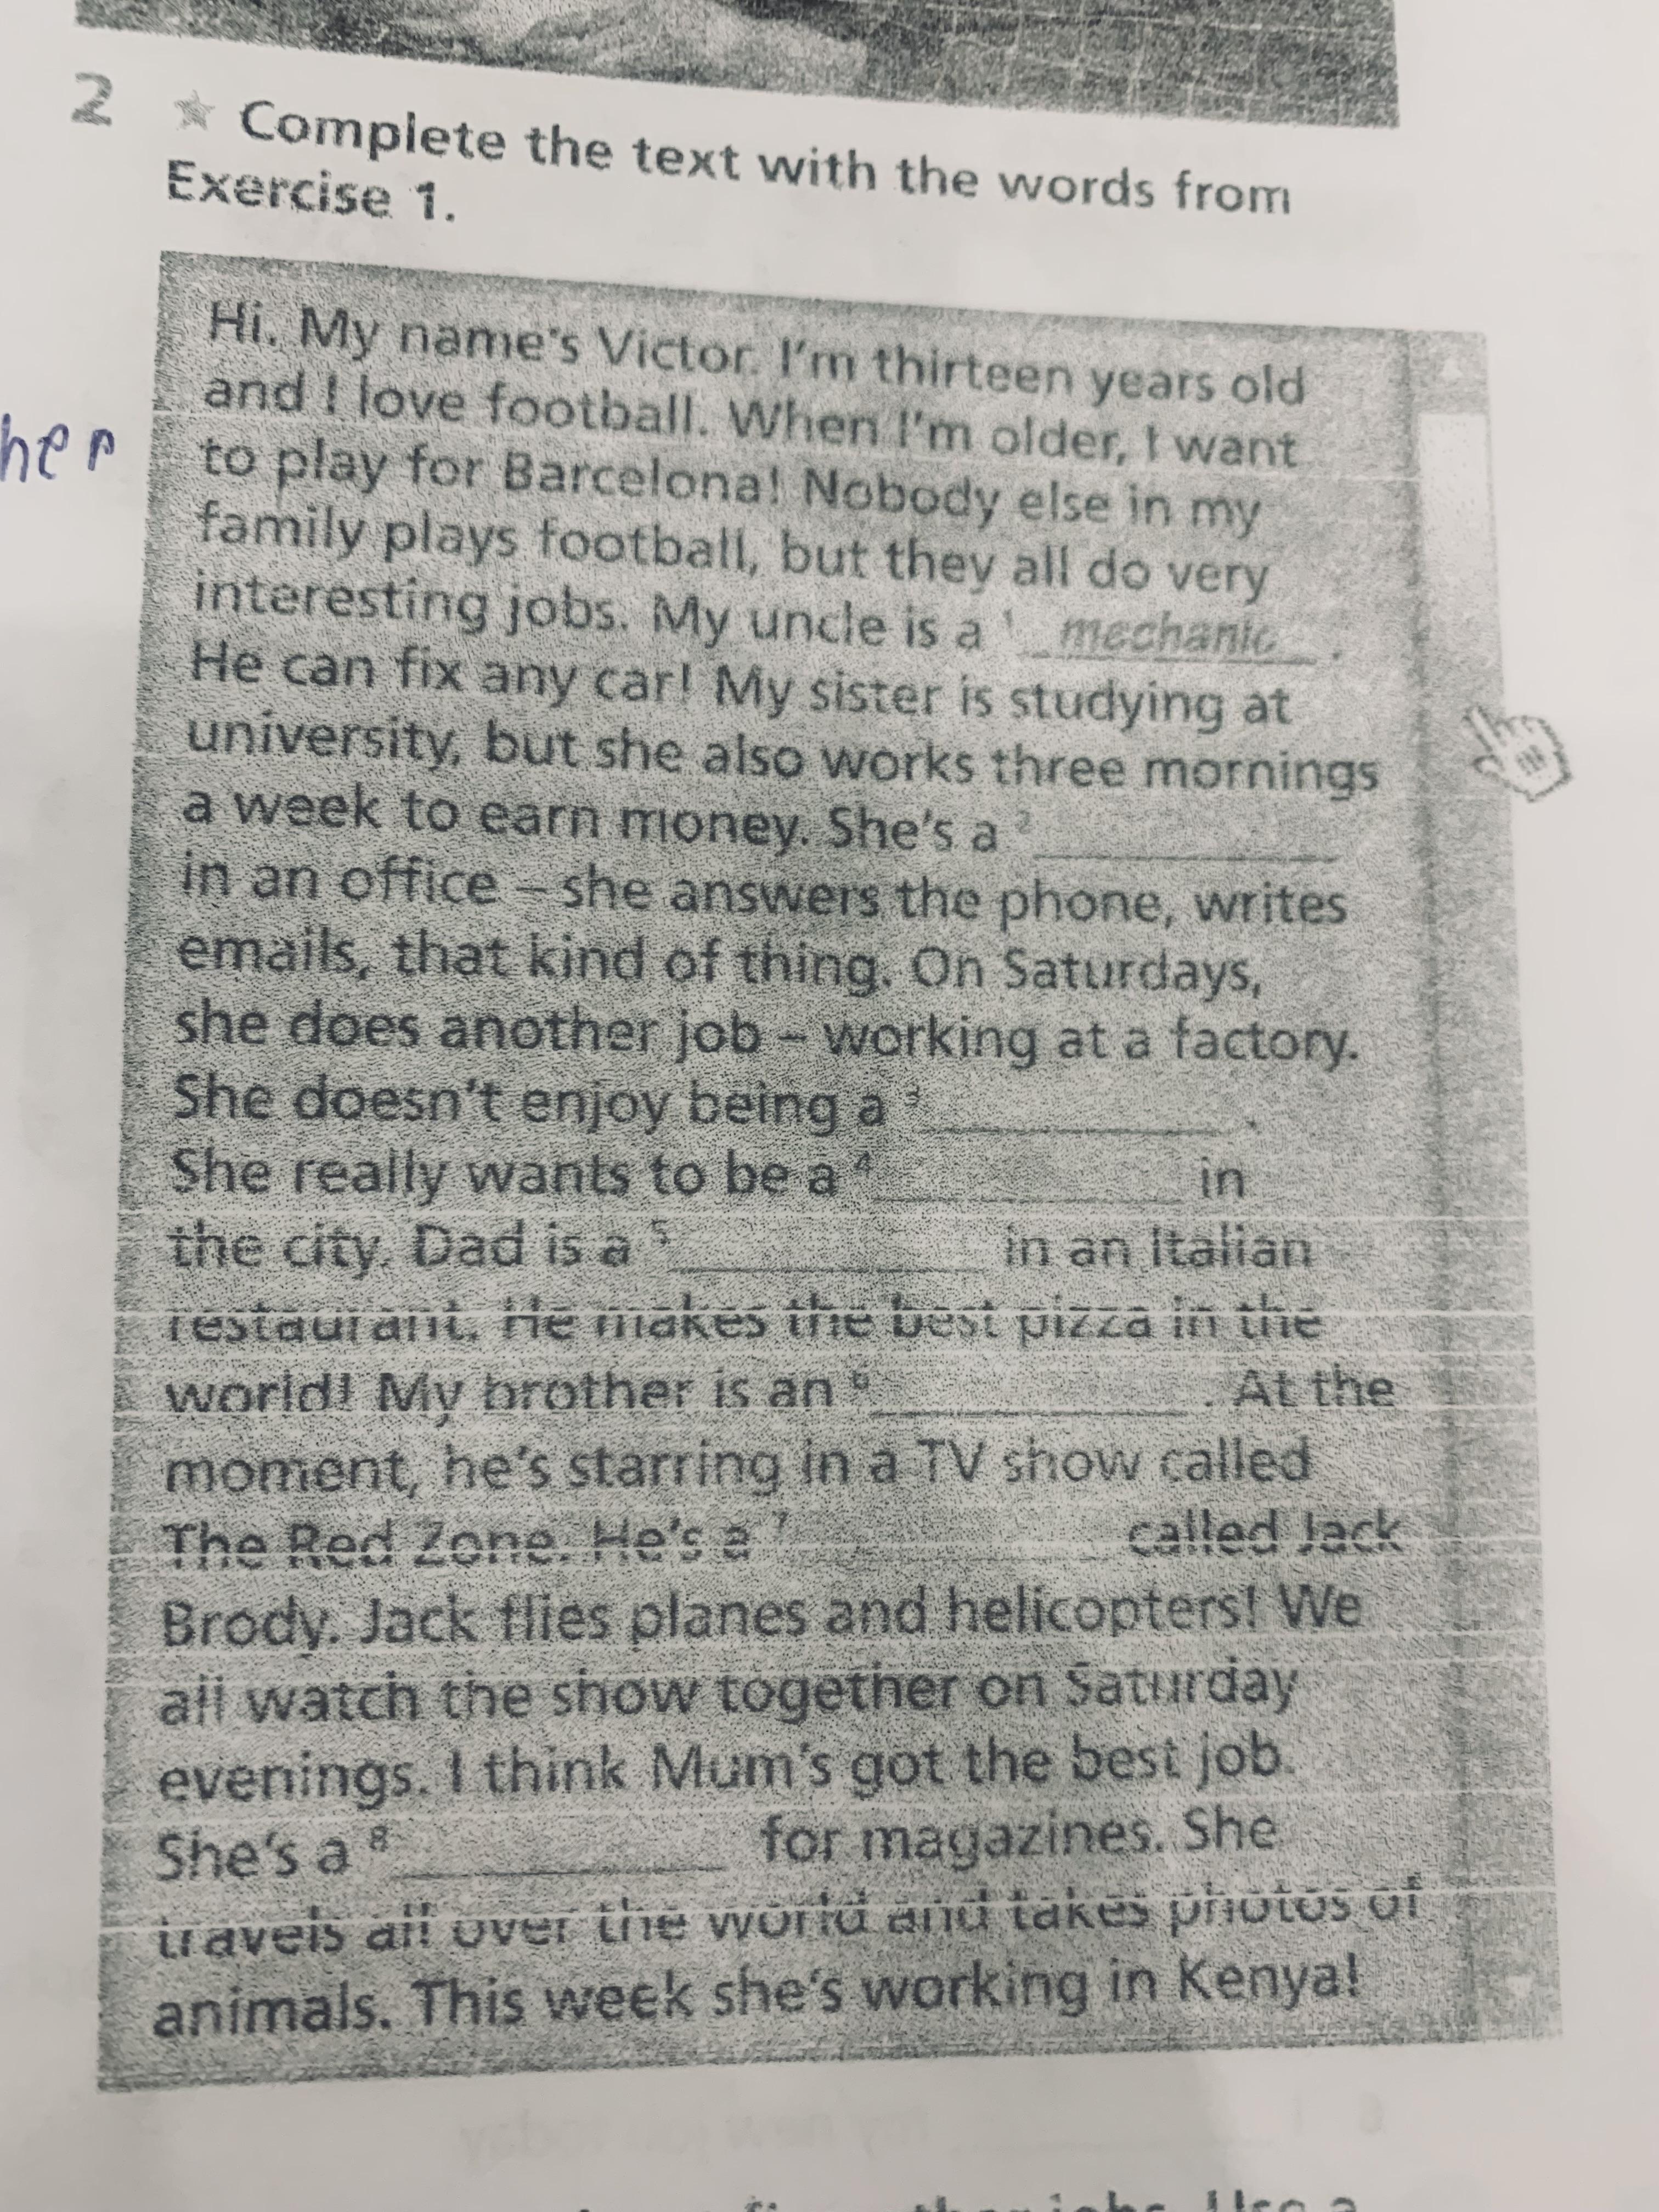 2 ★ Complete the text with the words from
Exercise 1.
her
Hi. My name's Victor. I'm thirteen years old
and I love football. When I'm older, I want
to play for Barcelona! Nobody else in my
family plays football, but they all do very
interesting jobs. My uncle is a 1 mechanic .
He can fix any car! My sister is studying at
university, but she also works three mornings
a week to earn money. She's a 2 ____________
in an office – she answers the phone, writes
emails, that kind of thing. On Saturdays,
she does another job – working at a factory.
She doesn't enjoy being a 3 ____________ .
She really wants to be a 4 ____________ in
the city. Dad is a 5 ____________ in an Italian
restaurant. He makes the best pizza in the
world! My brother is an 6 ____________ . At the
moment, he's starring in a TV show called
The Red Zone. He's a 7 ____________ called Jack
Brody. Jack flies planes and helicopters! We
all watch the show together on Saturday
evenings. I think Mum's got the best job.
She's a 8 ____________ for magazines. She
travels all over the world and takes photos of
animals. This week she's working in Kenya!